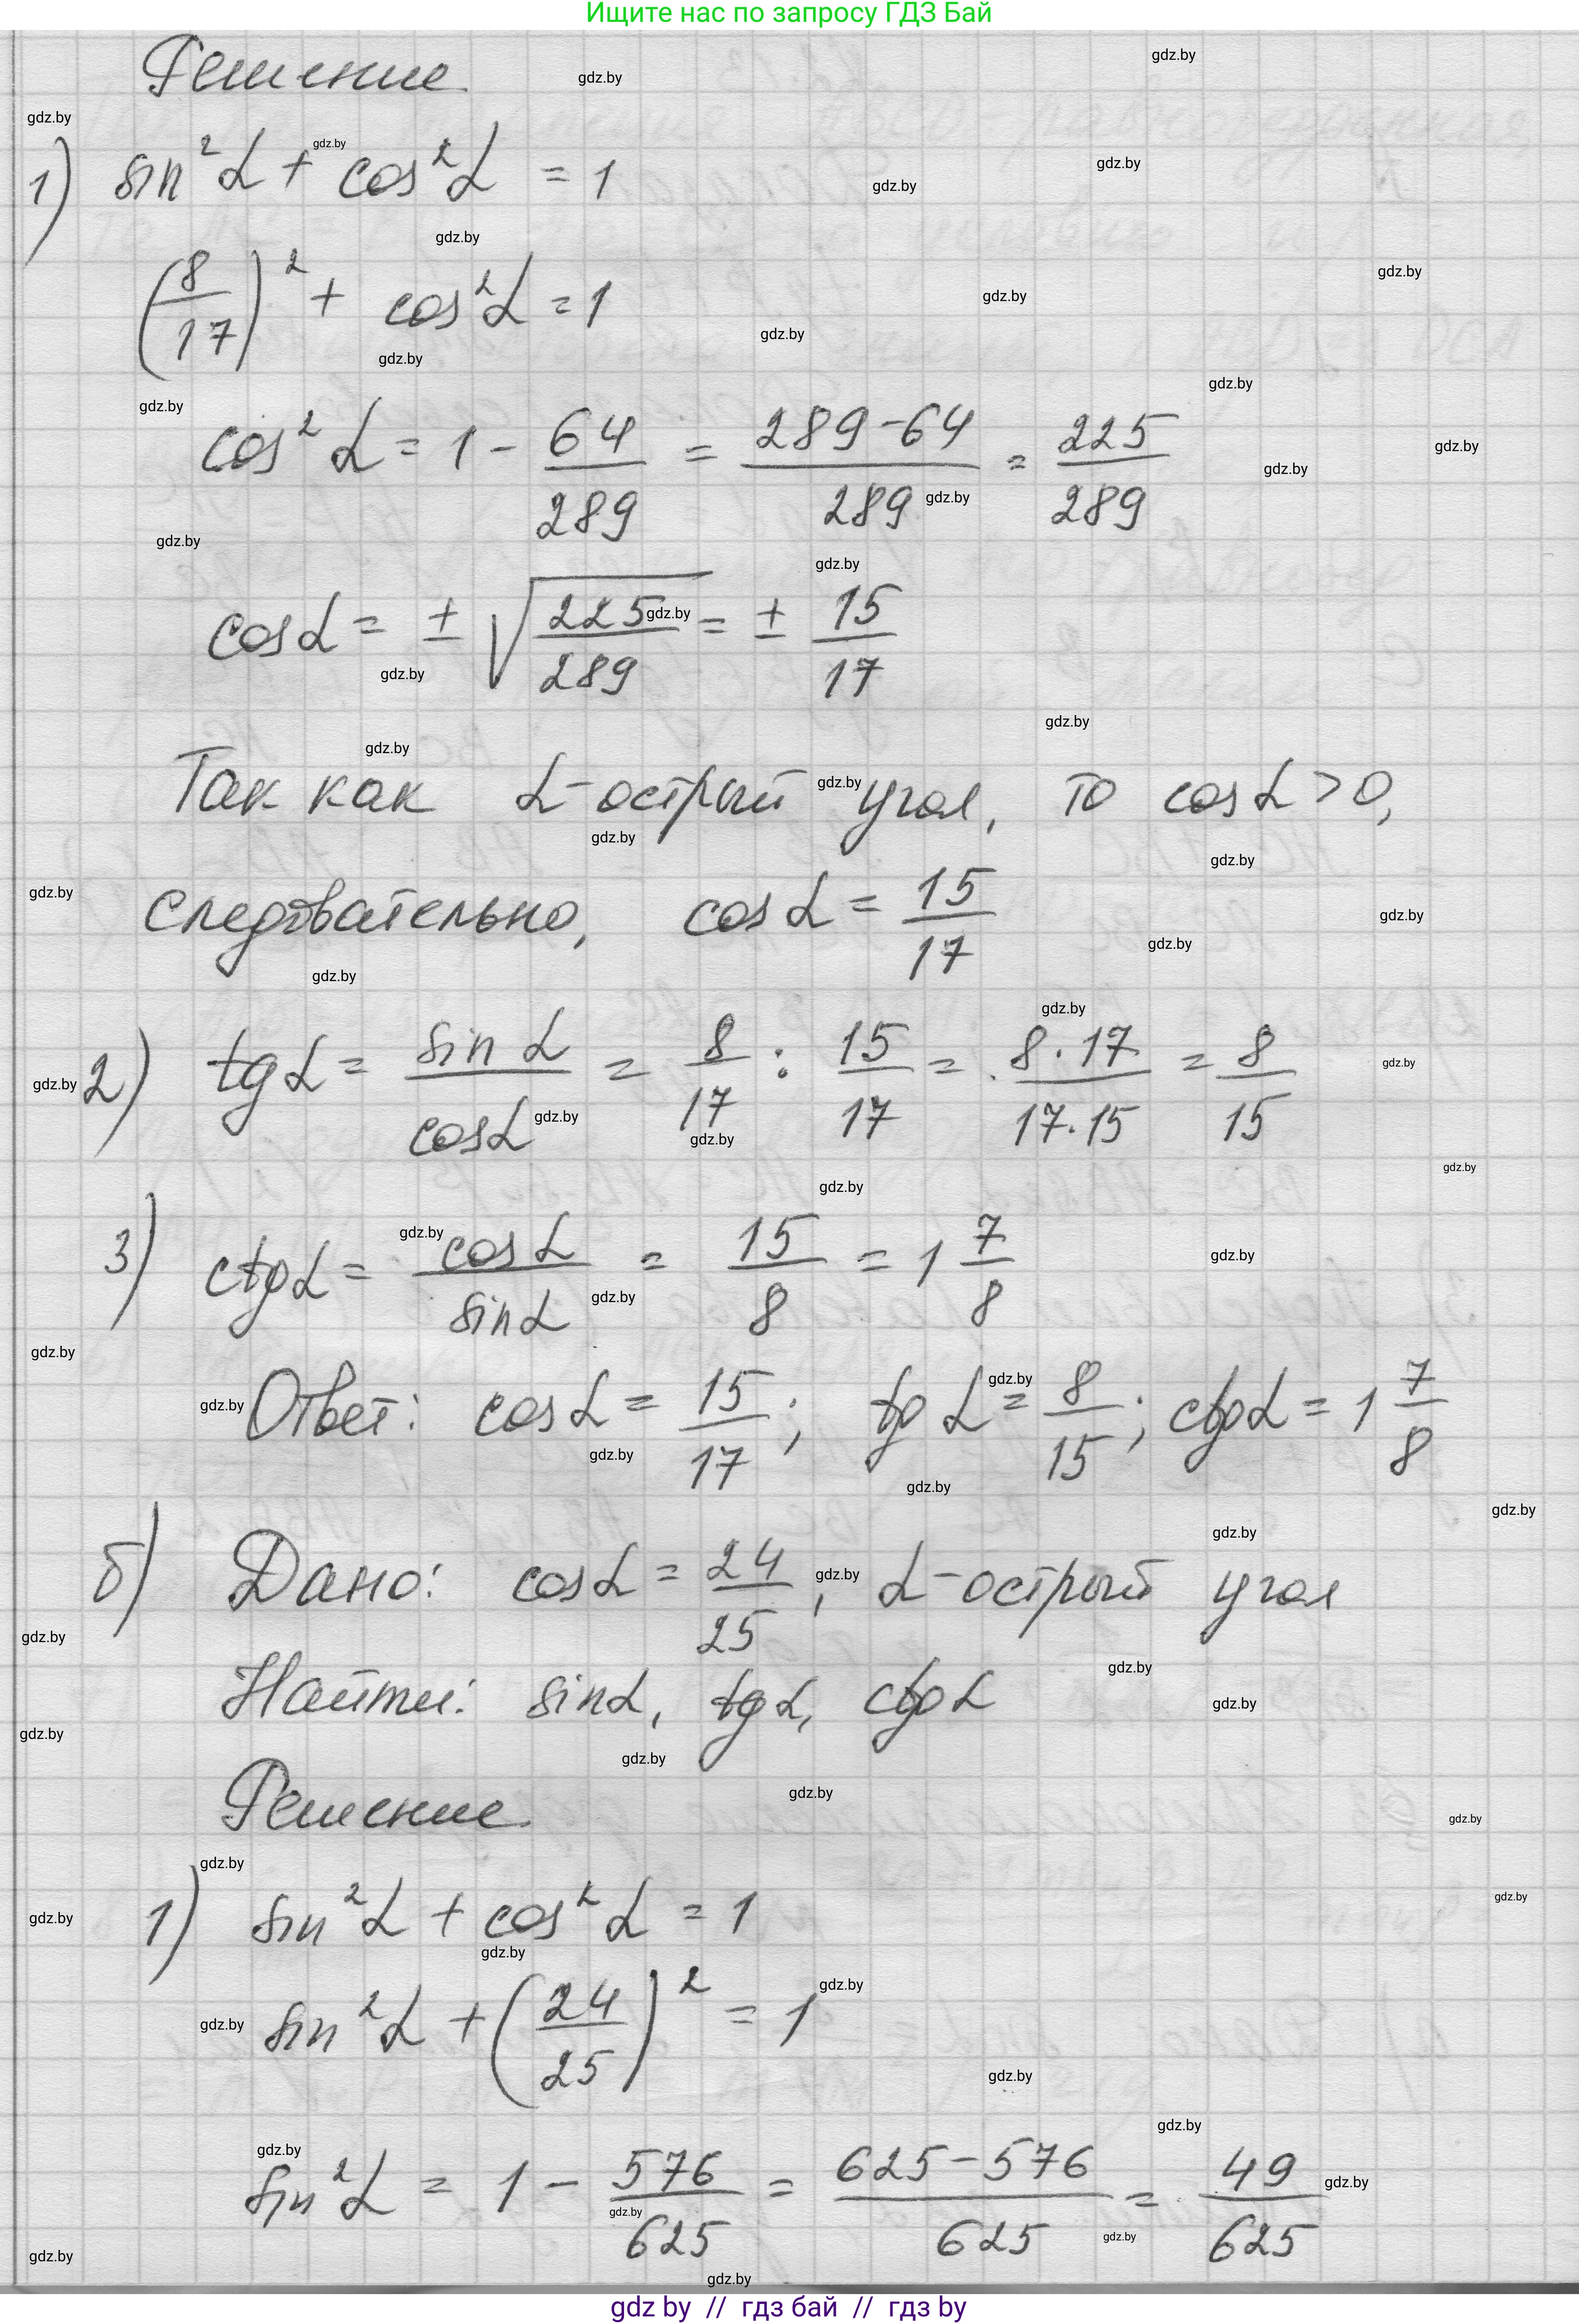 Ищите нас по запросу ГДЗ Бай
Решение
1) sin²α + cos²α = 1
(8/17)² + cos²α = 1
cos²α = 1 - 64/289 = 289-64/289 = 225/289
cosα = ± √225/289 = ± 15/17
Так как α-острый угол, то cosα > 0,
следовательно, cosα = 15/17
2) tgα = sinα/cosα = 8/17 : 15/17 = 8·17/17·15 = 8/15
3) ctgα = cosα/sinα = 15/8 = 1 7/8
Ответ: cosα = 15/17; tgα = 8/15; ctgα = 1 7/8
б) Дано: cosα = 24/25, α-острый угол
Найти: sinα, tgα, ctgα
Решение
1) sin²α + cos²α = 1
sin²α + (24/25)² = 1
sin²α = 1 - 576/625 = 625-576/625 = 49/625
gdz by // гдз бай // гдз by